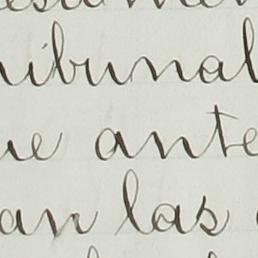 ribunal
ue ante
an las